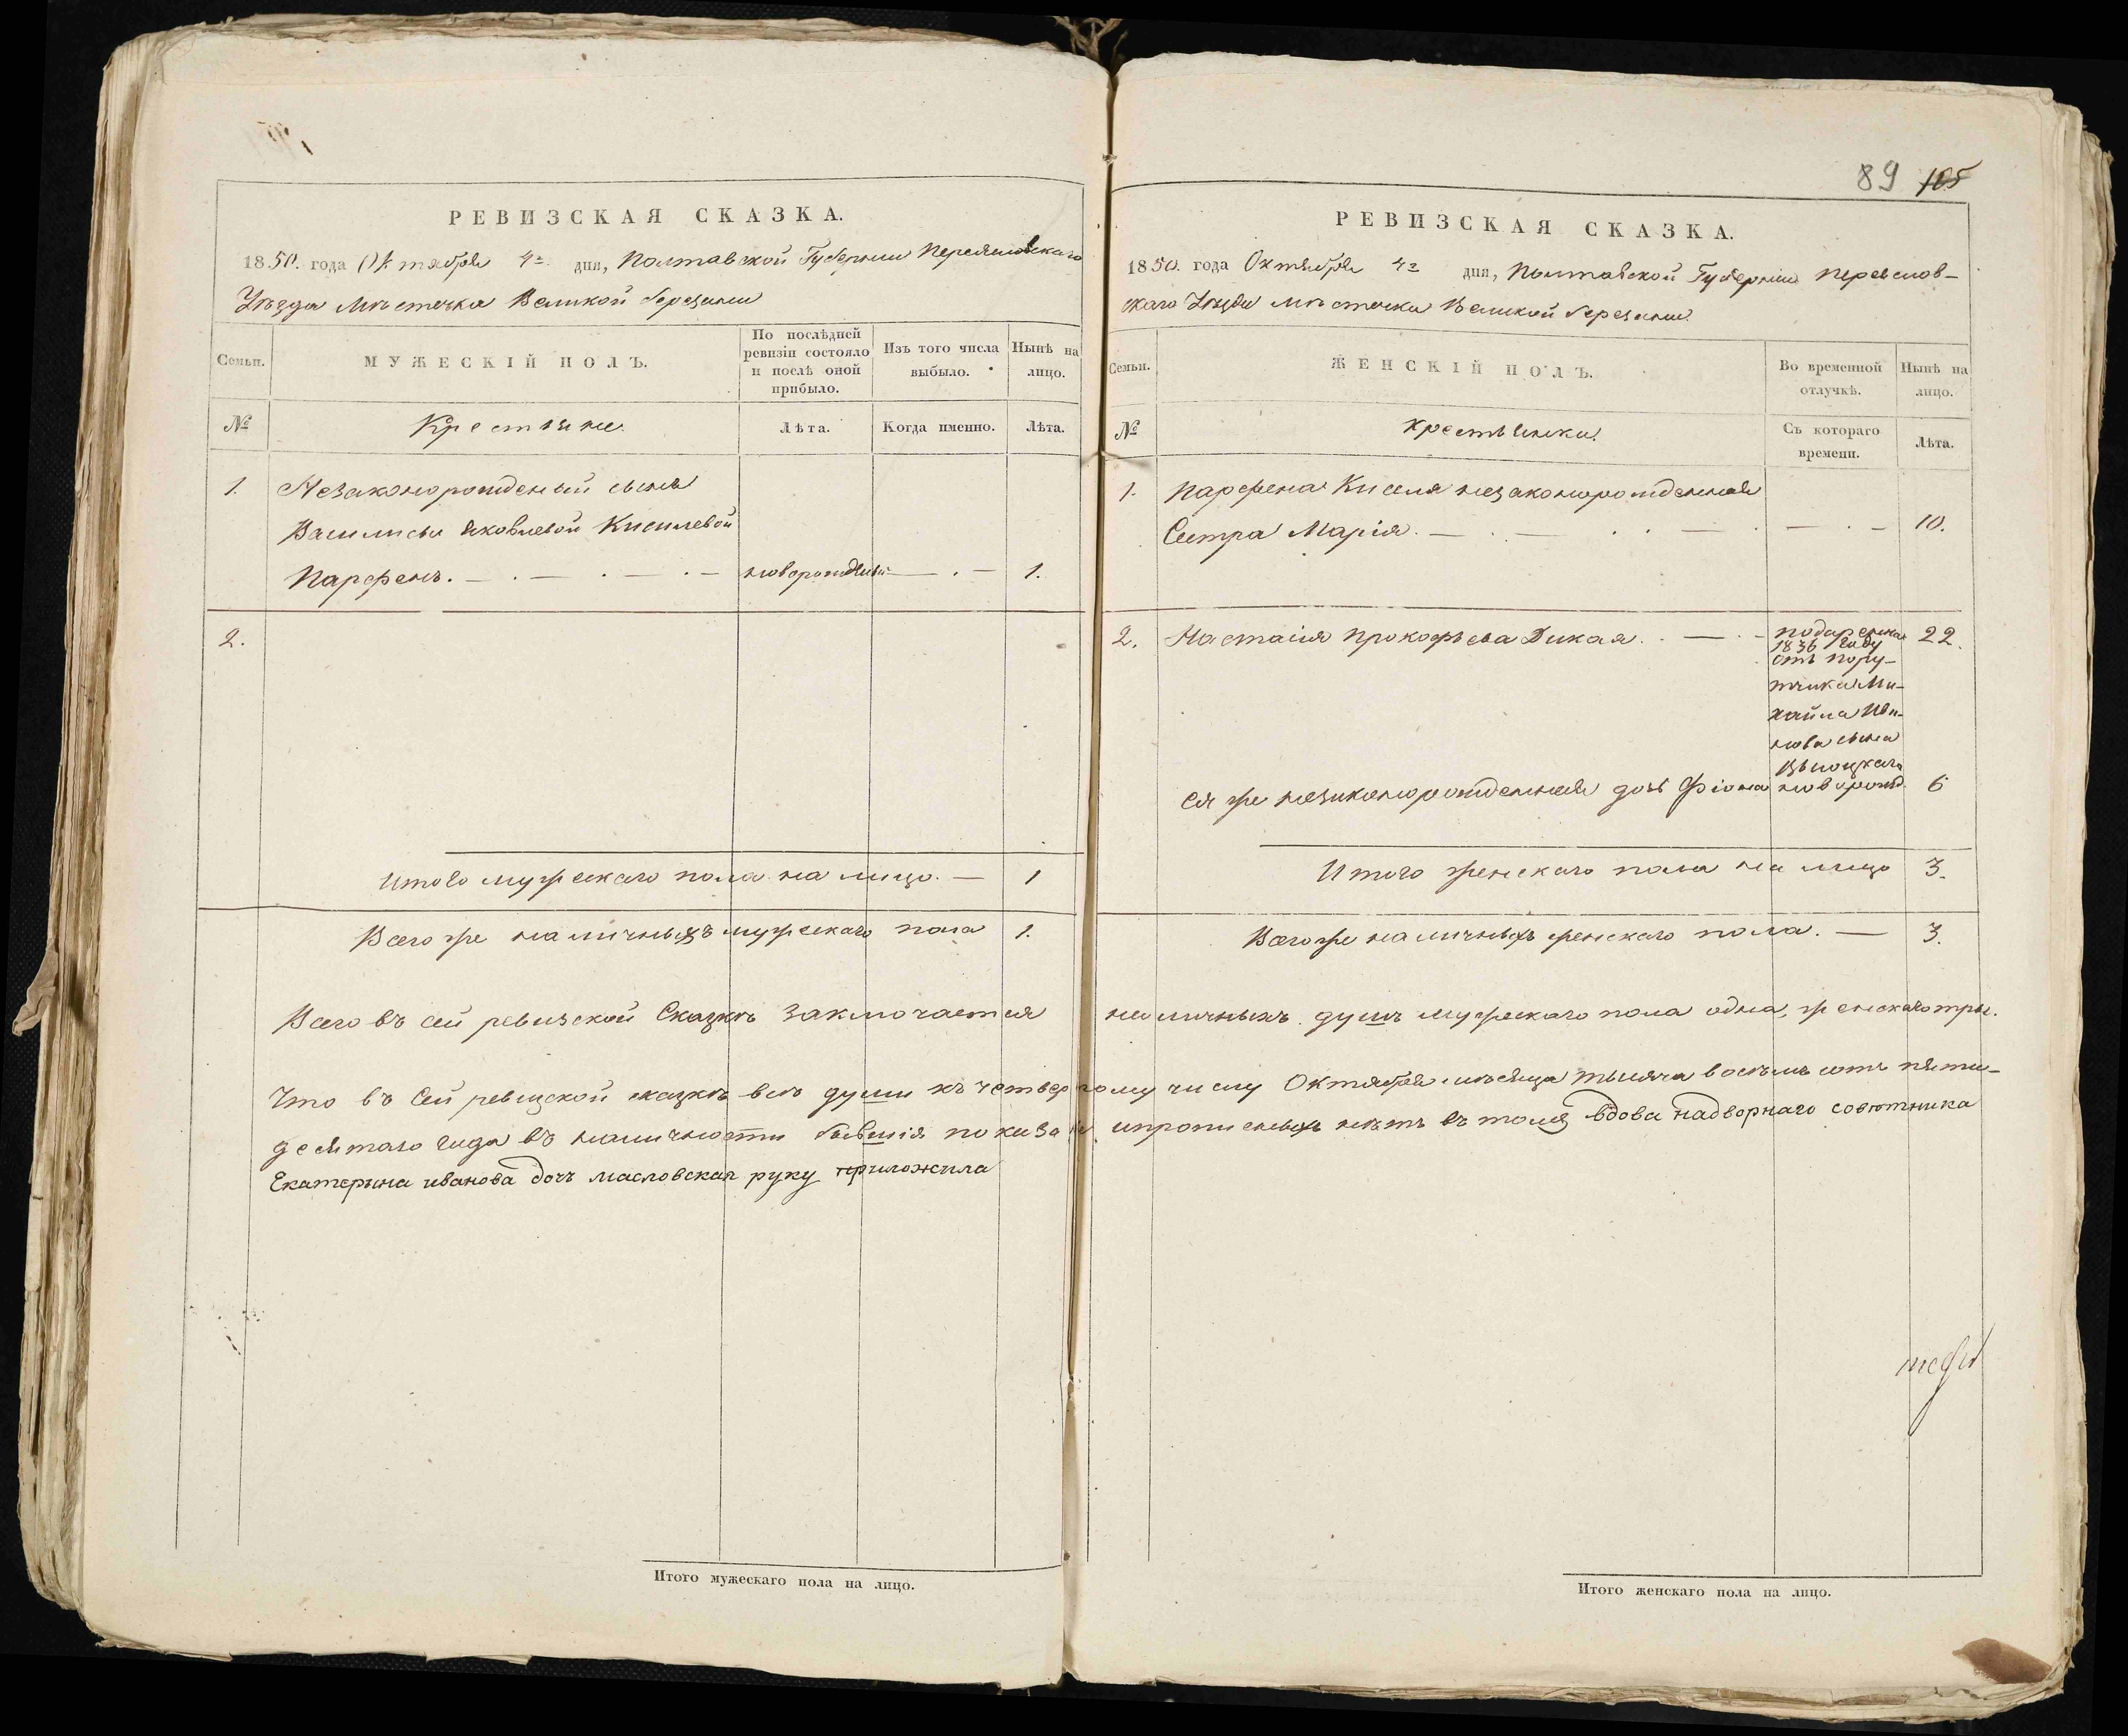 РЕВИЗСКАЯ СКАЗКА.
1850. года Октября 4го дня, Полтавской Губернии Переяславскаго
Уезда Местечка Великой березани
Семьи.
МУЖЕСКІЙ ПОЛЪ.
По послѣдней
ревизіи состояло
и послѣ оной
прибыло.
Изъ того числа
выбыло.
Нынѣ на
лицо.
№
Крестьяне.
Лѣта.
Когда именно.
Лѣта.
1. Незаконорожденый сынъ
Василисы Яковлевой Киселевой
Парфенъ. — . — . — . — новорожденый — . — 1.
2.
Итого мужескаго пола на лицо. — 1
Всего же наличныхъ мужескаго пола 1.
89 105
РЕВИЗСКАЯ СКАЗКА.
1850. года Октября 4го дня, Полтавской Губернии Переяслов-
скаго Уезда местечка Великой березани.
Семьи.
ЖЕНСКІЙ ПОЛЪ.
Во временной
отлучкѣ.
Нынѣ на
лицо.
№
крестьянки.
Съ котораго
времени.
Лѣта.
1. Парфена Киселя незаконорожденная
Сестра Марія. — . — . . — . — . — 10.
2. Настасія Прокофьева Дикая. . — . — подарена 22.
1836 году
отъ пору-
тчика Ми-
хайла Ива-
нова сына
ея же незаконорожденная дочь Фіона новорожд. 6
Итого женскаго пола на лицо 3.
Всего же наличныхъ женскаго пола. — 3.
Всего въ сей ревизской Сказкѣ заключается наличныхъ душъ мужескаго пола одна, женскаго три.
Что въ Сей ревизской сказкѣ всѣ души къ четвертому числу Октября месяца тысяча восемь сотъ пяти-
десятаго года въ наличности бывшія показаны и прописныхъ нѣтъ въ томъ вдова надворнаго совѣтника
Екатерина иванова дочъ масловская руку приложила
Итого мужескаго пола на лицо.
Итого женскаго пола на лицо.